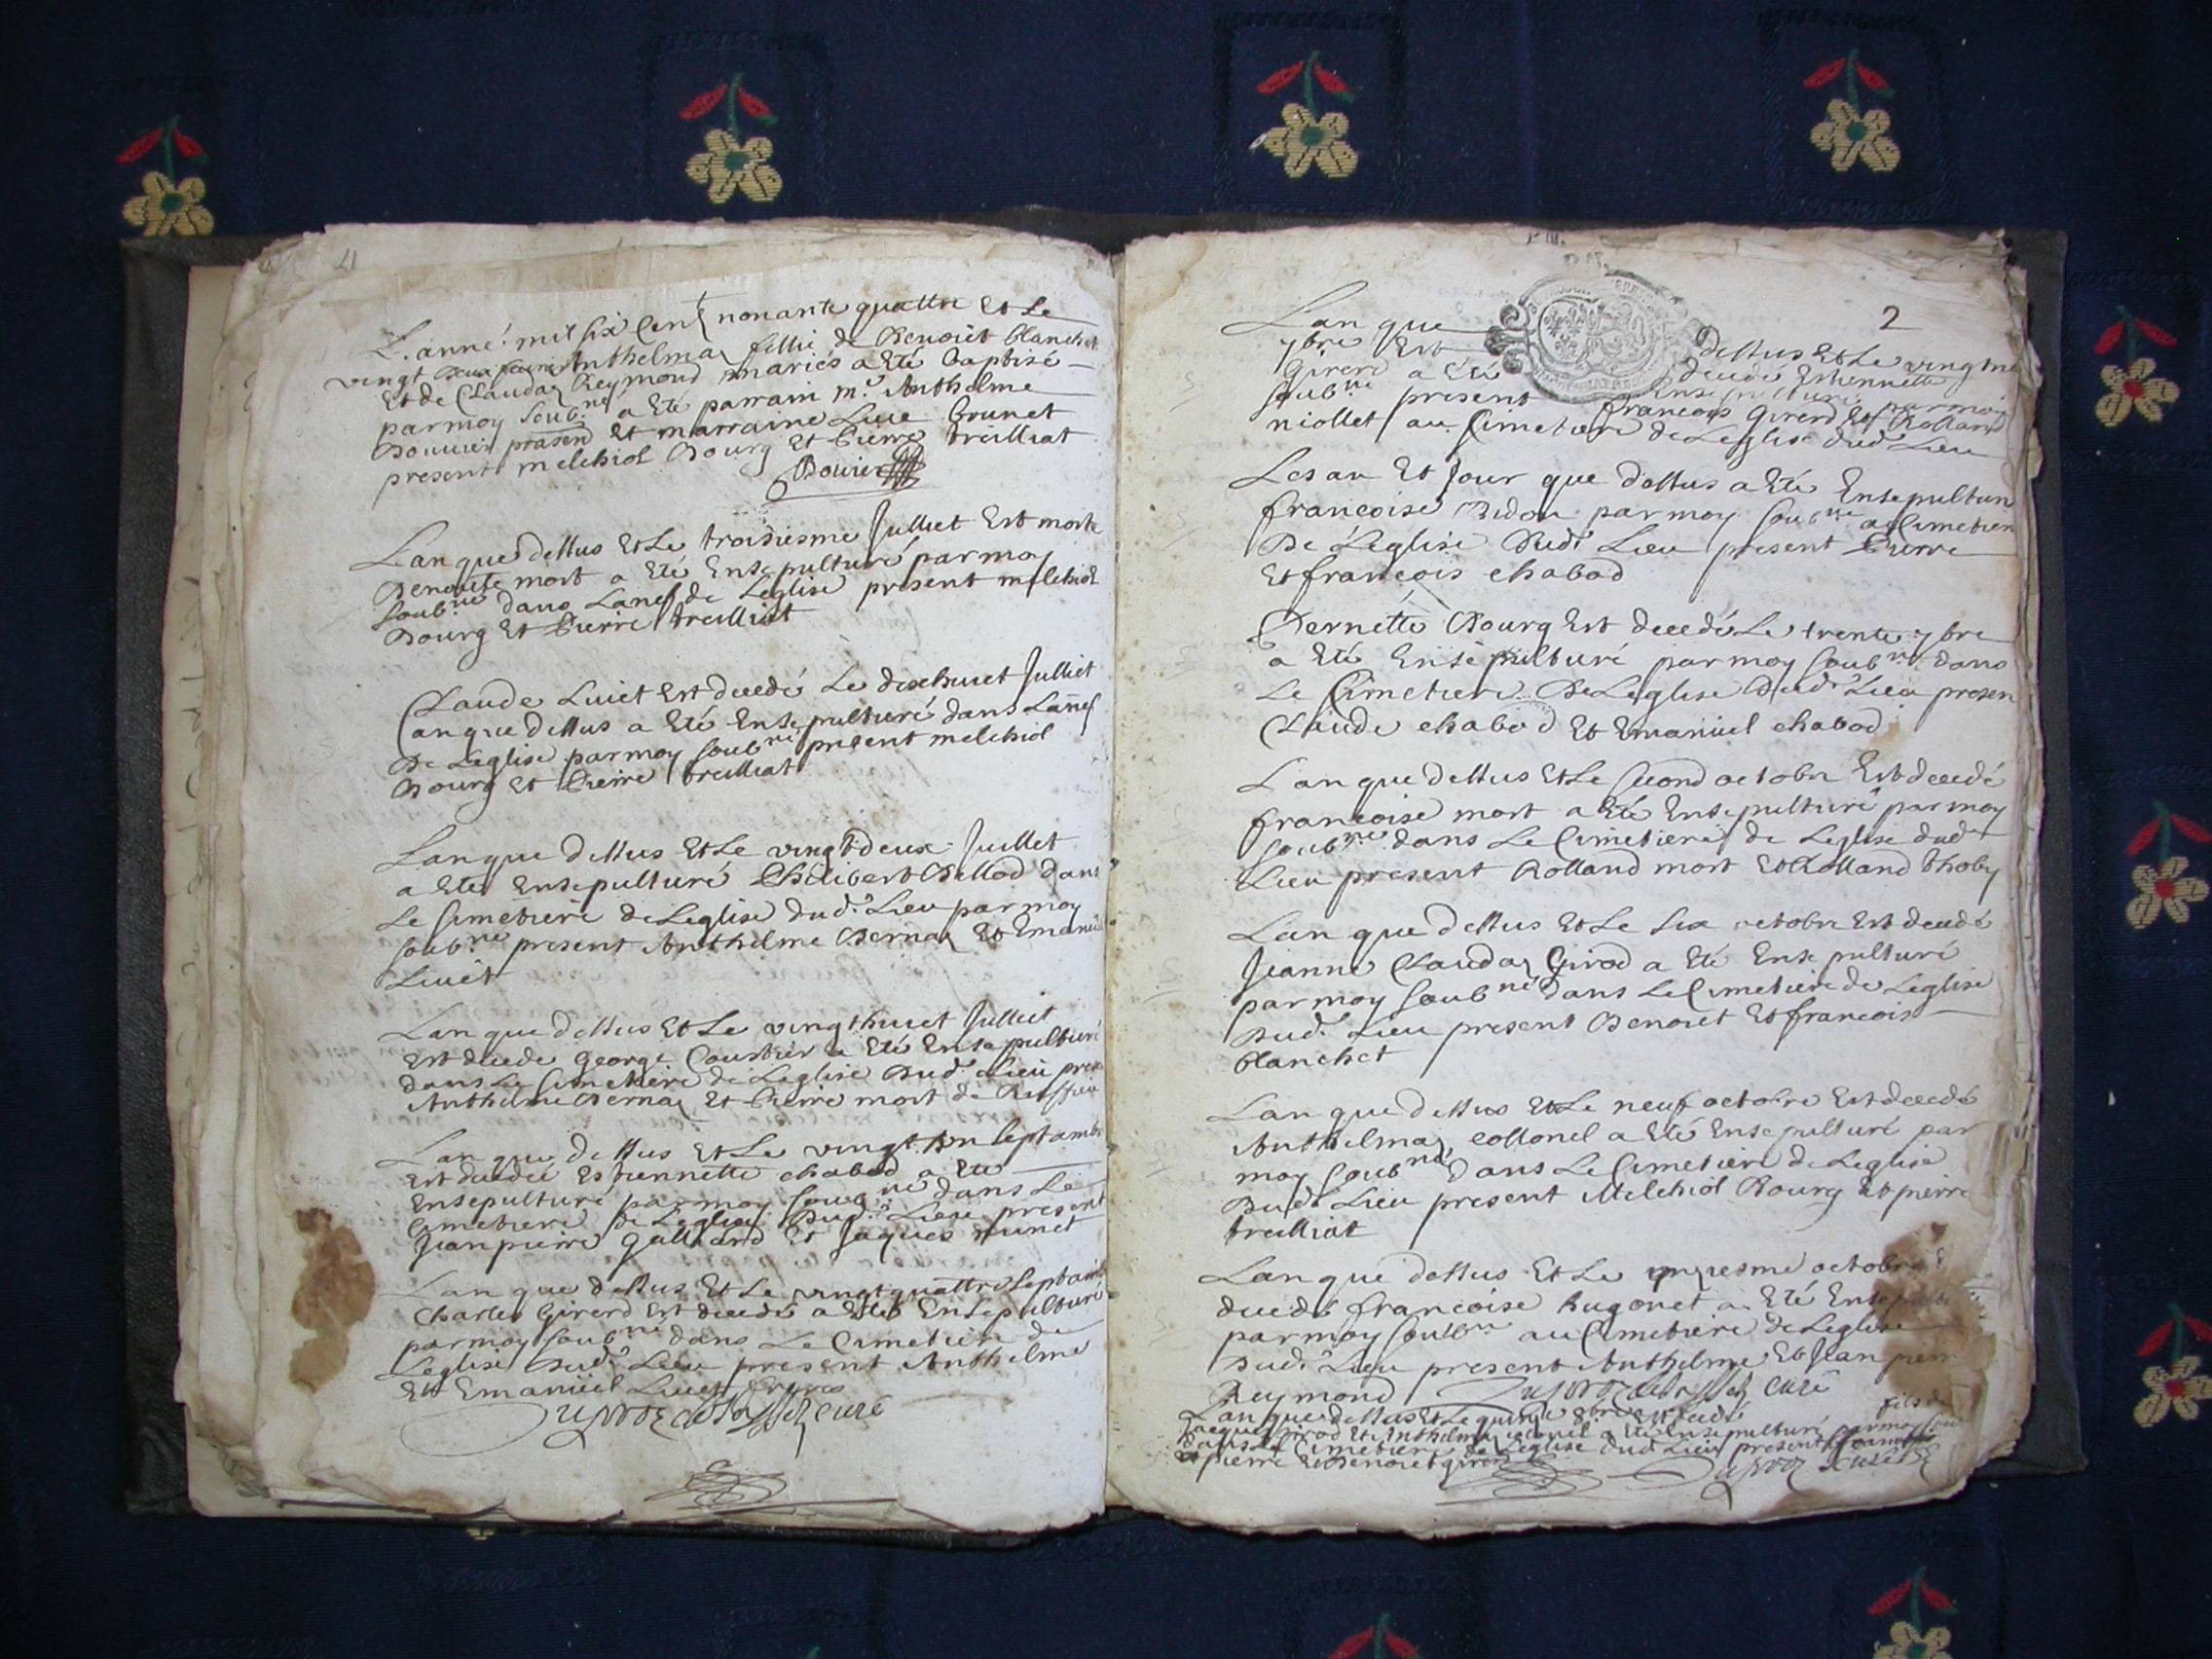 L'anné mil six Cent nonante quattre et Le
vingt Anthelma fillie de Benoist blanchet
Et de Clauda Reymond mariés a Eté baptisé
par moy soub.né a Eté parrain m.e Anthelme
Bouuier præsend Et marraine brunet
present melchiol Bourg Et Pierre treilliat
Bouier
Lan que dessus Et Le troisiesme Julliet Est morte
Benoite mort a Eté Ensepulturé par moy
soub.né dans Lanef de Leglise present melchiol
Bourg Et Pierre treilliat
Claude Liuet Est decedé Le dixhuict Julliet
Lan que dessus a Eté Ensepulturé dans Lanef
De Leglise par moy soub.né present melchiol
Bourg Et Pierre treilliat
Lan que dessus Et Le vingt deux Juillet
a Eté Ensepulturé Philibert Billod dans
Le Cimetiere de Leglise dud.t Lieu par moy
soub.né present Anthelme Bernaz Et Emanuel
Liuet
Lan que dessus Et Le vingthuict Julliet
Est decede george Courtier a Eté Ensepulturé
dans Le Cimetiere de Leglise Dud.t Lieu
Anthelme Bernaz Et Pierre mort de
Lan que dessus Et Le vingt Un septambre
Est decedée Estiennette chabod a Eté
Ensepulturé par moy soub.né dans Le
Cimetiere de Leglise Dud.t Lieu present
Jean pierre galliard Et Jaques
Lan que dessus Et Le vingt quattre septambre
Charles Girerd Est decedé a Eté Ensepulturé
par moy soub.né dans Le Cimetiere de
Leglise Dud.t Lieu present Anthelme
Et Emanüel Liuet freres
curé
2
Lan que dessus Et Le vingt
7bre Est decedé Estiennette
Girerd a Eté Ensepulturé par moy
soub.né present francois Girerd Et Rolland
niollet au Cimetiere de Leglise dud.t Lieu
Les an Et Jour que dessus a Eté Ensepulturé
francoise par moy soub.né au Cimetiere
De Leglise Dud.t Lieu present Pierre
Et francois chabod
Pernette Bourg Est decedé Le trente 7bre
a Eté Ensepulturé par moy soub.né dans
Le Cimetiere De Leglise Dud.t Lieu presen
Claude chabod Et Emanüel chabod
Lan que dessus Et Le second octobre Est decedé
francoise mort a Eté Ensepulturé par moy
soub.né dans Le Cimetiere de Leglise dud.t
Lieu present Rolland mort Et Rolland thoby
Lan que dessus Et Le six octobre Est decedé
Jeanne Clauda Girod a Eté Ensepulturé
par moy soub.né dans Le Cimetiere de Leglise
Dud.t Lieu present Benoiet Et francois
blanchet
Lan que dessus Et Le neuf octobre Est decedé
Anthelma collonel a Eté Ensepulturé par
moy soub.né dans Le Cimetiere de Leglise
Dud.t Lieu present Melchiol Bourg Et pierre
treilliat
Lan que dessus Et Le onziesme octobre
decedé francoise hugonet a Eté
par moy soub.né au Cimetiere de Leglise
Dud.t Lieu present Anthelme Et Jean
Reymond curé
Lan que dessus Et Le quinze 8bre Est decedé fils de
Jacques Girod Et Anthelma a Eté Ensepulturé par moy
dans Le Cimetiere de Leglise dud Lieu present
pierre Et Benoiet girod